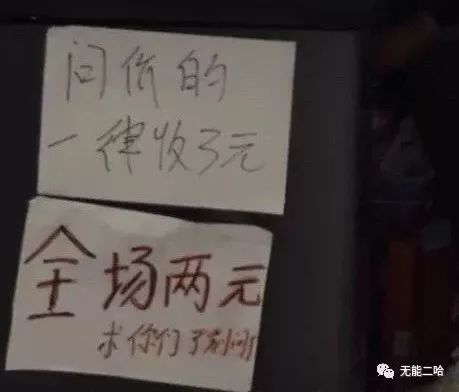 问价的
一律收3元
全场两元
求你们了别问了
无能二哈